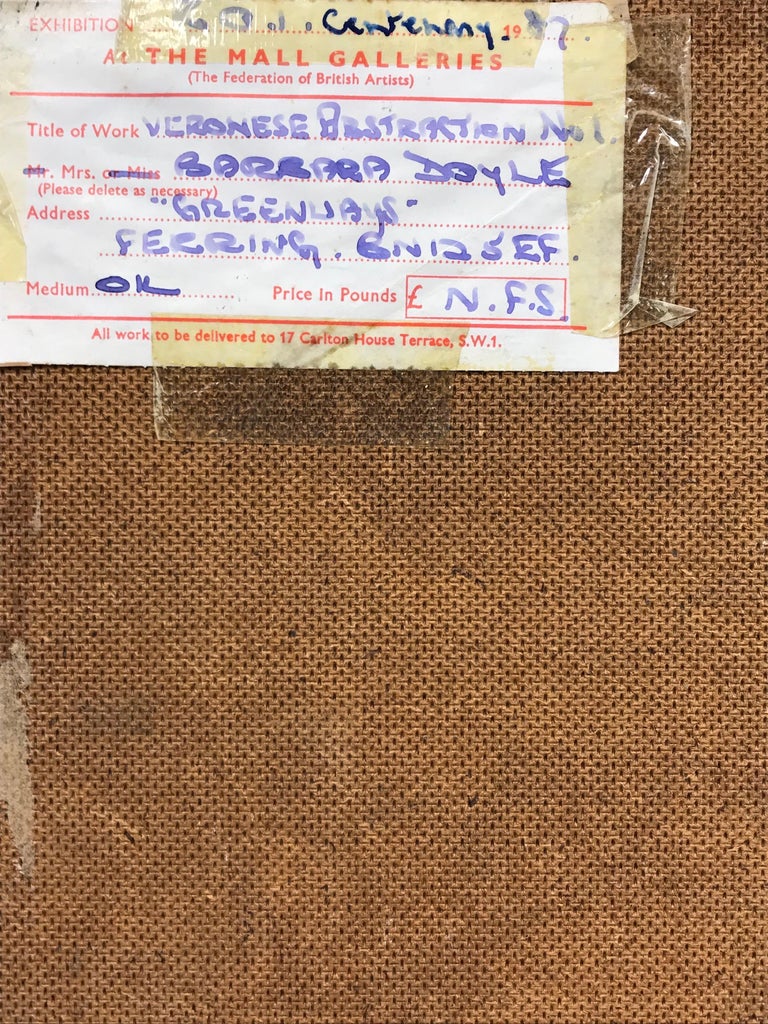 EXHIBITION Centenary 1987.
At THE MALL GALLERIES
(The Federation of British Artists)
Title of Work VERONESE ABSTRACTION No 1.
Mr. Mrs. or Miss BARBARA DOYLE
(Please delete as necessary)
Address "GREENWAYS"
FERRING. BN12 5EF.
Medium OIL Price in Pounds £ N.F.S.
All work to be delivered to 17 Carlton House Terrace, S.W.1.